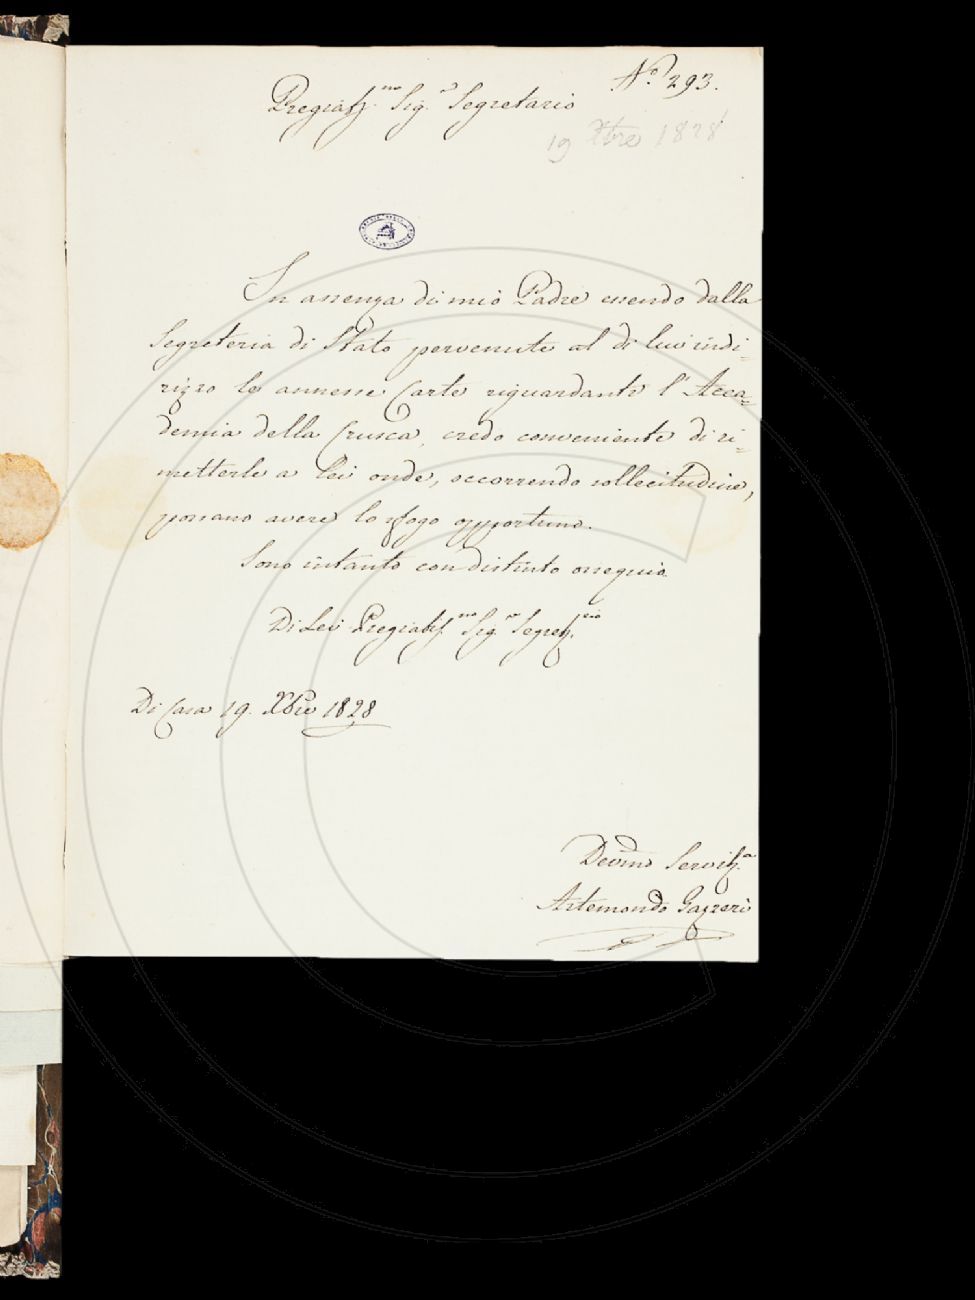 N.o 293.
Pregiatiss.mo Sig.r Segretario
19 Xbre 1828
In assenza di mio Padre essendo dalla
Segreteria di Stato pervenute al di lui indi=
rizzo le annesse Carte riguardanti l'Acca=
demia della Crusca, credo conveniente di ri=
metterle a Lei onde, occorrendo sollecitudine,
possano avere lo sfogo opportuno.
Sono intanto con distinto ossequio
Di Lei Pregiatiss.mo Sig.r Segret.rio
Di Casa 19. Xbre 1828
Devmo Servit.e
Artemondo Gazzeri